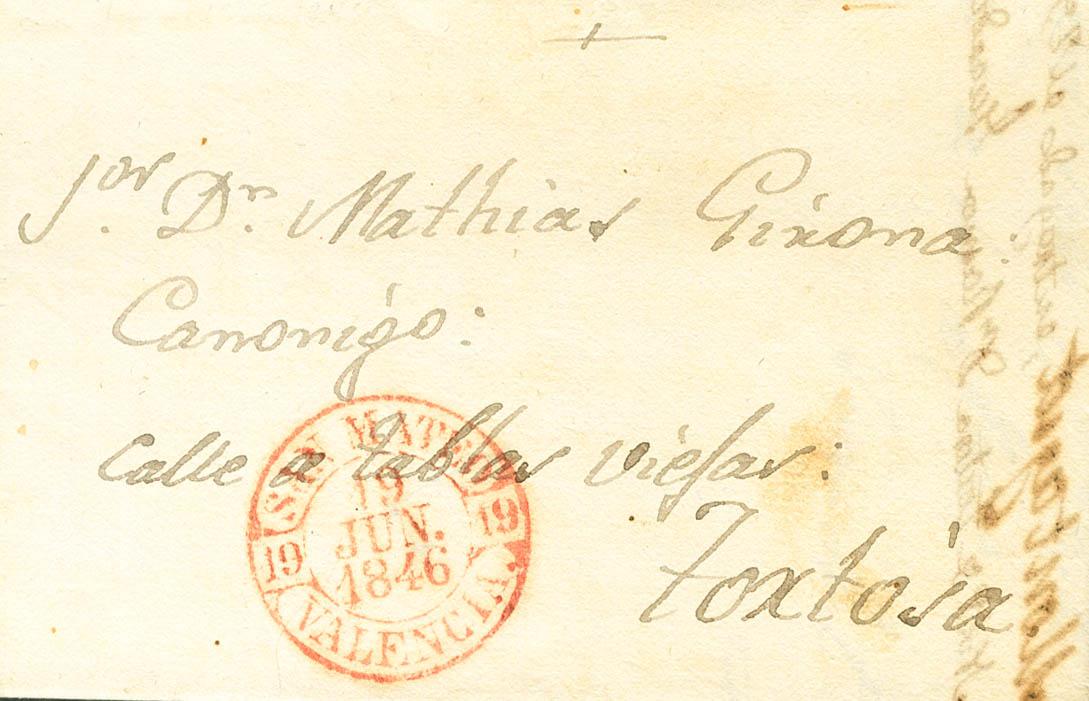 Sor. Dn. Mathias Girona:
Canonigo:
Calle a tablas viejas:
Tortosa.
SAN MATEO
19
JUN.
1846
19
19
VALENCIA.